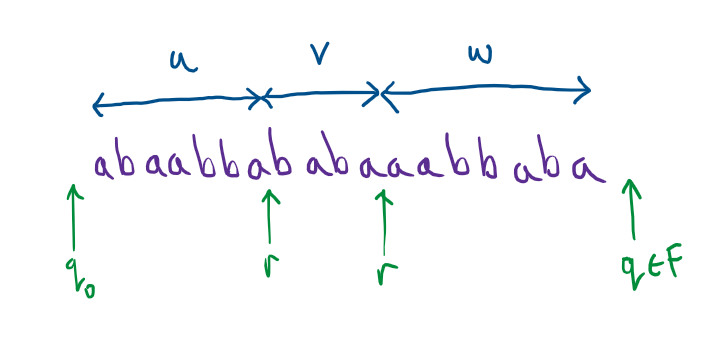 u v w
abaabbababaaabbaba
q₀ r r q∈F